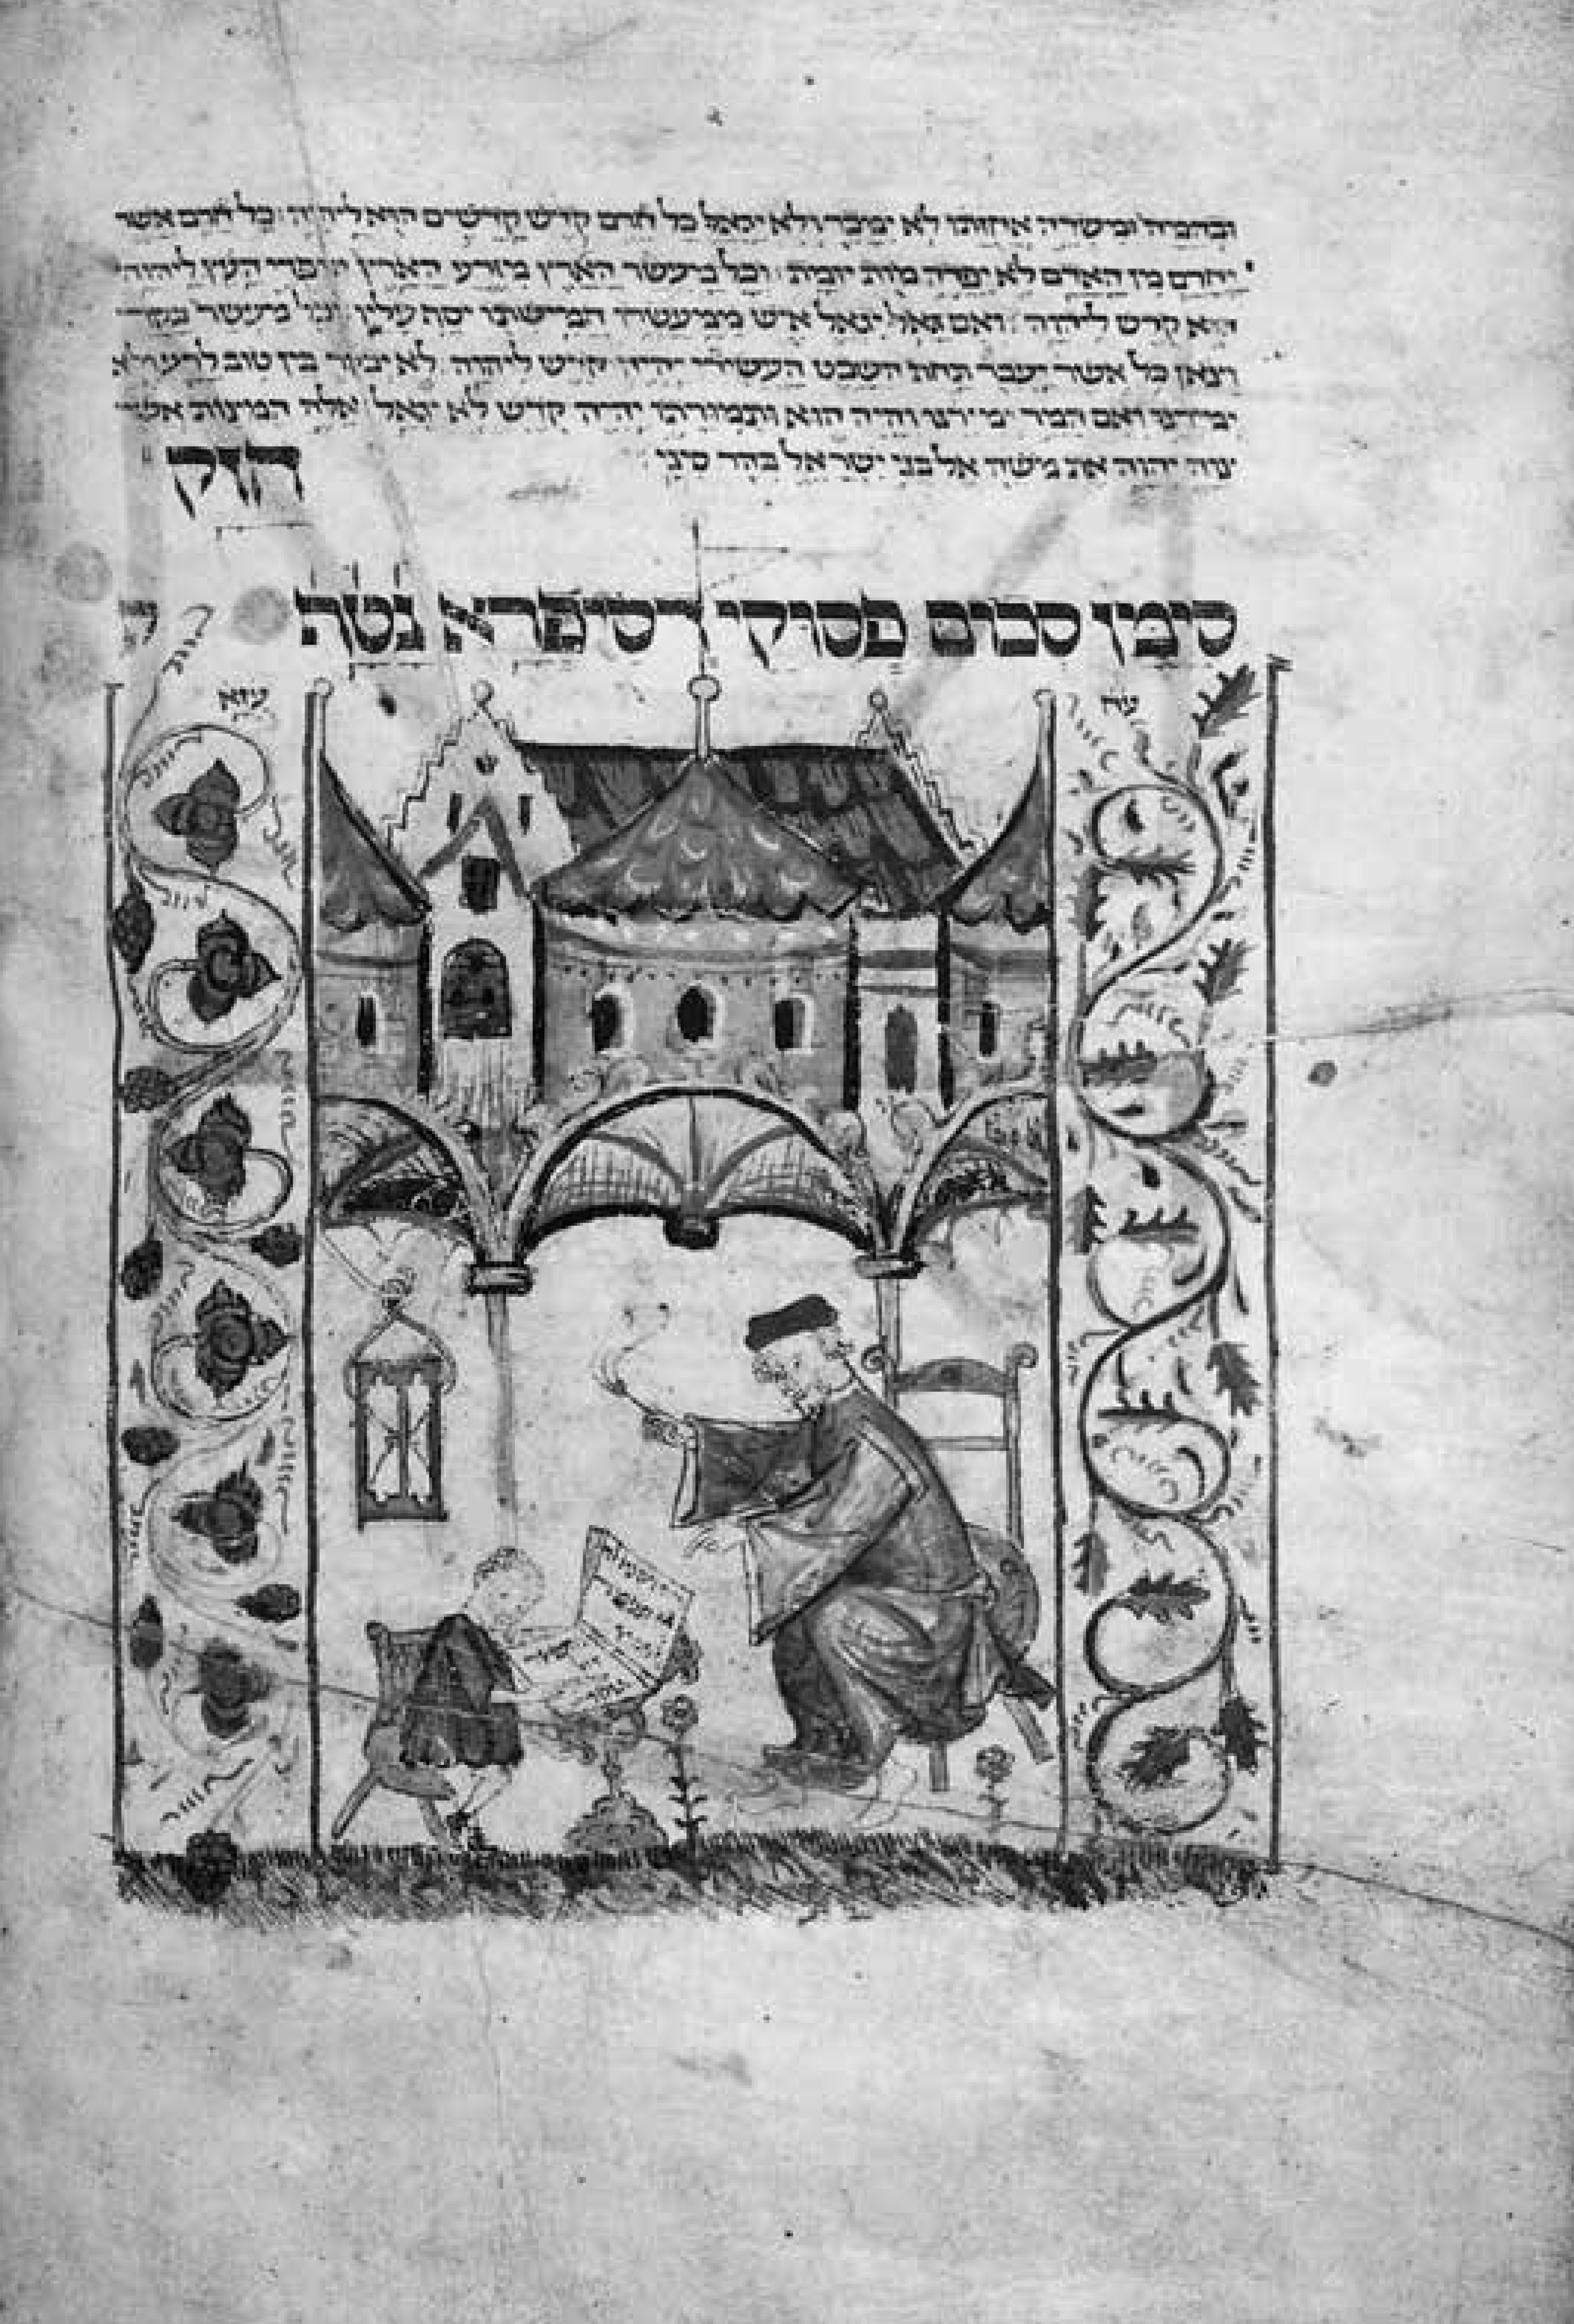 ובהמה ומשדה אחוזתו לא ימכר ולא יגאל כל חרם קדש קדשים הוא ליהוה כל חרם אשר
יחרם מן האדם לא יפדה מות יומת וכל מעשר הארץ מזרע הארץ מפרי העץ ליהוה
הוא קדש ליהוה ואם גאל יגאל איש ממעשרו חמישיתו יסף עליו וכל מעשר בקר
וצאן כל אשר יעבר תחת השבט העשירי יהיה קדש ליהוה לא יבקר בין טוב לרע ולא
ימירנו ואם המר ימירנו והיה הוא ותמורתו יהיה קדש לא יגאל אלה המצות אשר
צוה יהוה את משה אל בני ישראל בהר סיני
חזק
סימן סכום פסוקי דסיפרא נטח